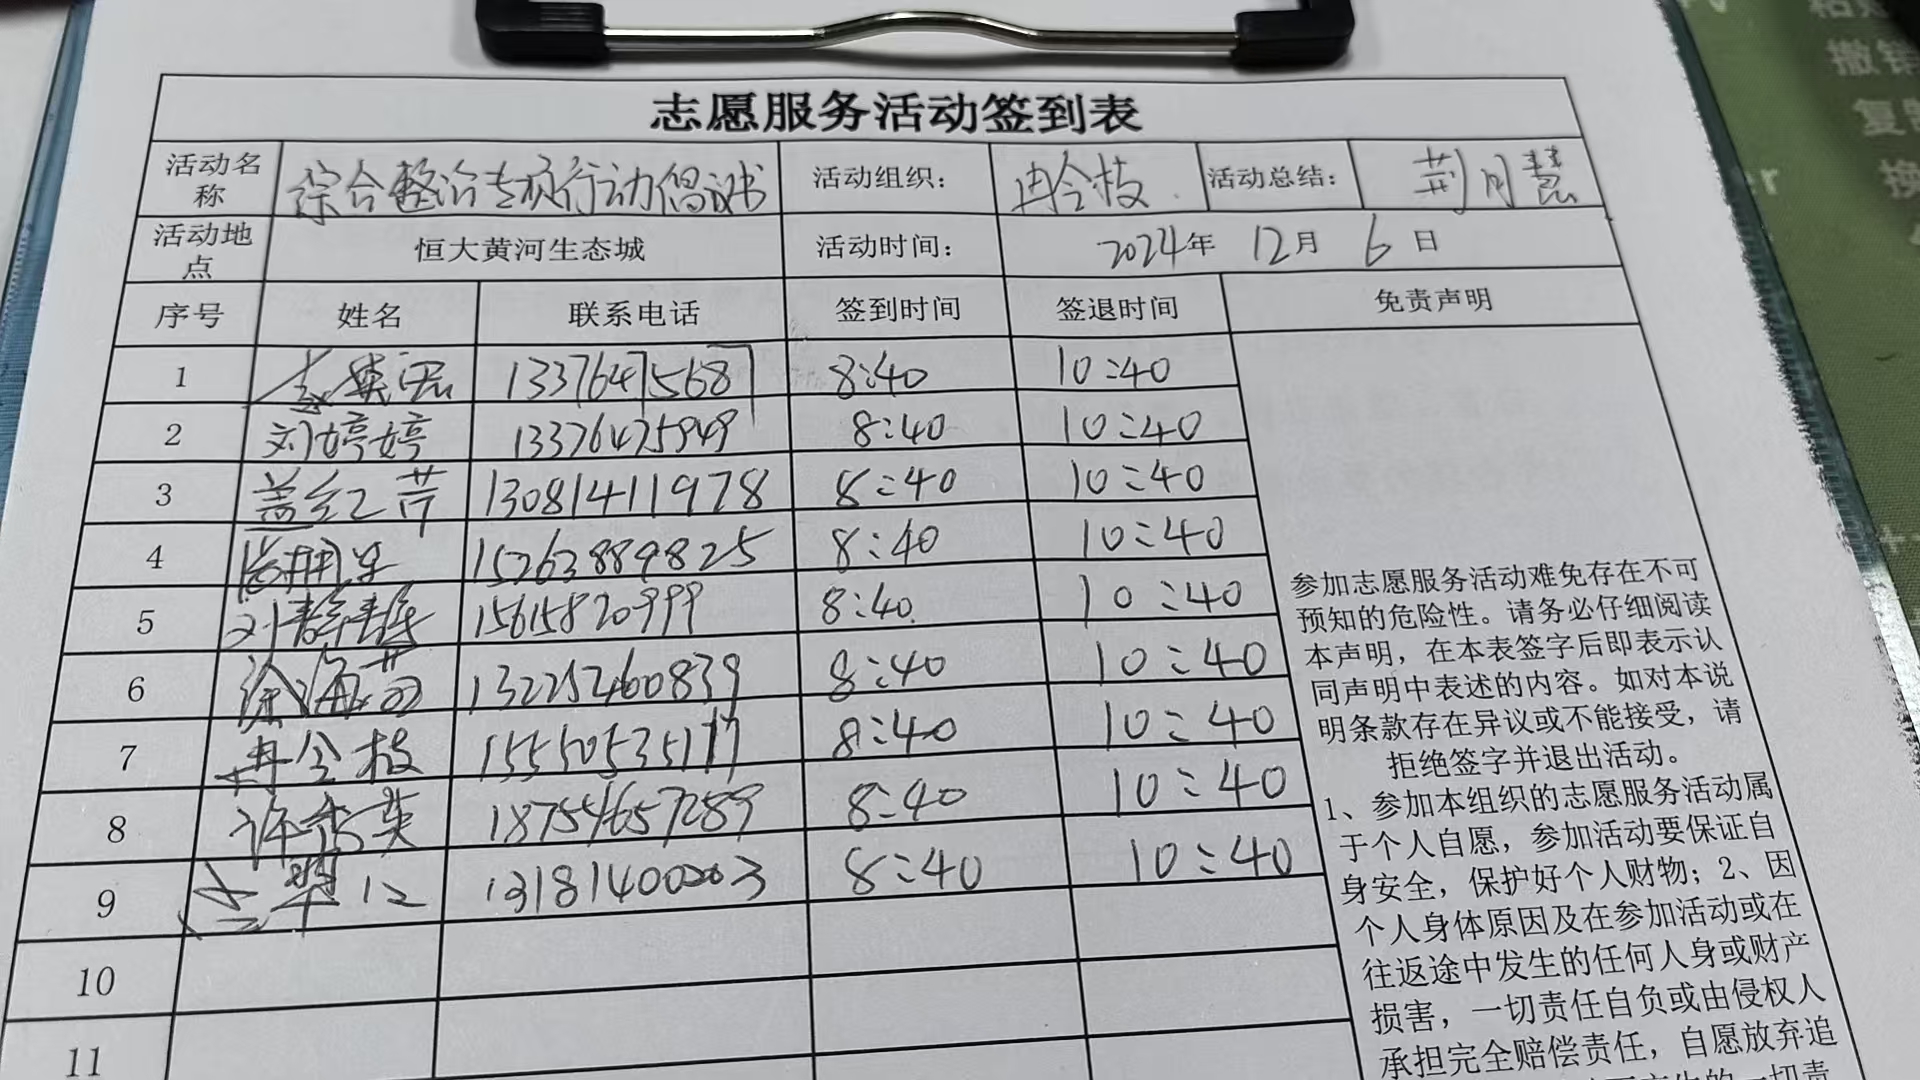 志愿服务活动签到表
活动名称 综合整治专项行动倡议书 活动组织： 冉令枝 活动总结： 荆月慧
活动地点 恒大黄河生态城 活动时间： 2024年 12月 6日
序号 姓名 联系电话 签到时间 签退时间 免责声明
1 13376475687 8:40 10:40
2 刘婷婷 13376475949 8:40 10:40
3 盖红芹 13081411978 8:40 10:40
4 15263889825 8:40 10:40
5 刘静静 15615820999 8:40 10:40
6 徐海茵 13225260839 8:40 10:40
7 冉令枝 8:40 10:40
8 许秀英 18754657289 8:40 10:40
9 13181400203 8:40 10:40
10
11
参加志愿服务活动难免存在不可
预知的危险性。请务必仔细阅读
本声明，在本表签字后即表示认
同声明中表述的内容。如对本说
明条款存在异议或不能接受，请
拒绝签字并退出活动。
1、参加本组织的志愿服务活动属
于个人自愿，参加活动要保证自
身安全，保护好个人财物；2、因
个人身体原因及在参加活动或在
往返途中发生的任何人身或财产
损害，一切责任自负或由侵权人
承担完全赔偿责任，自愿放弃追
撤销
复制
换